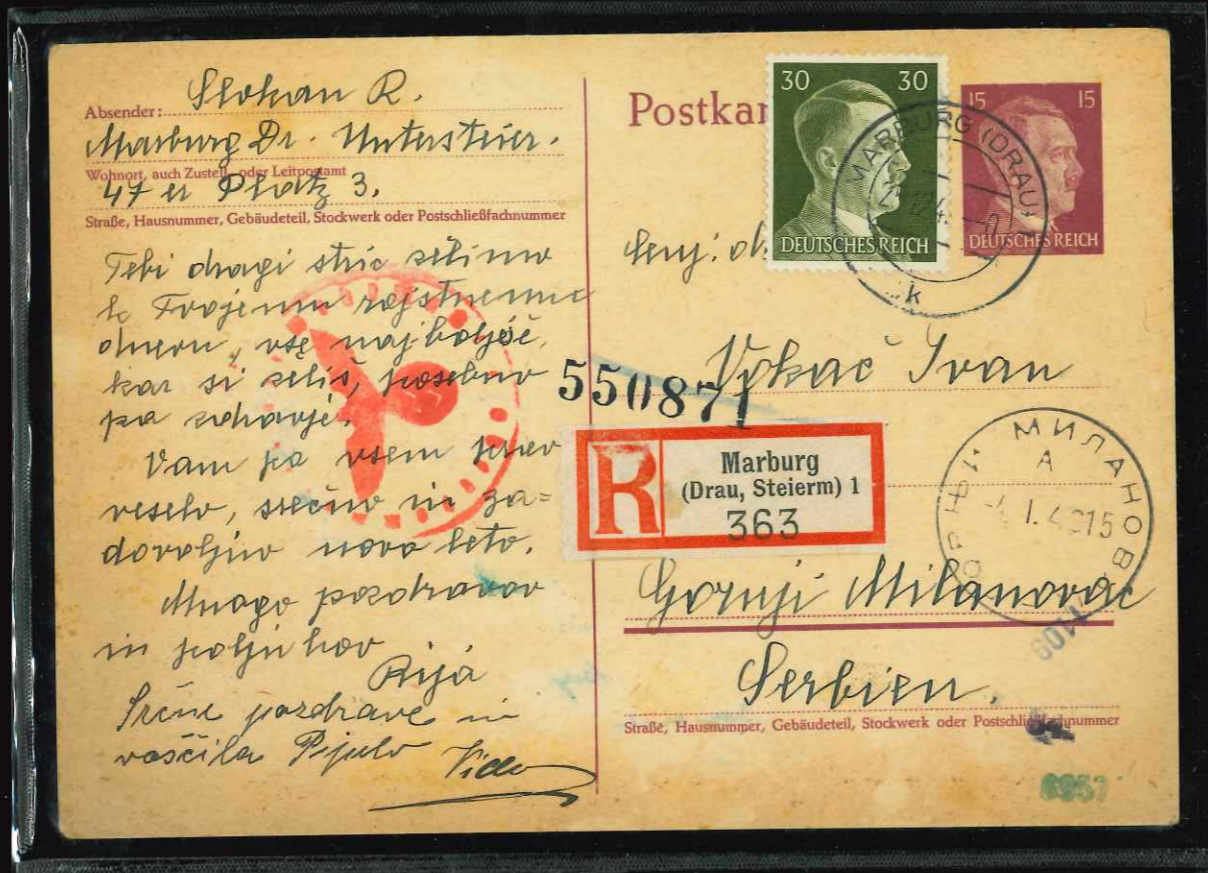 Absender: Slokan R.
Marburg Dr. Untersteier.
Wohnort, auch Zustell- oder Leitpostamt
47 er Platz 3.
Straße, Hausnummer, Gebäudeteil, Stockwerk oder Postschließfachnummer
Tebi dragi stric želimo
k Tvojemu rojstnemu
dnevu, vse najboljše,
kar si želiš, posebno
pa zdravje.
Vam pa vsem
veselo, srečno in za=
dovoljno novo leto.
Mnogo pozdravov
in poljubov
Srčne pozdrave in
voščila Vido
Postkar
30 30
DEUTSCHES REICH
15 15
DEUTSCHES REICH
MARBURG (DRAU)
k
Vokač Ivan
550871
R
Marburg
(Drau, Steierm) 1
363
МИЛАНОВ
А
I. 4 15
Gornji Milanovac
1109
Serbien.
Straße, Hausnummer, Gebäudeteil, Stockwerk oder Postschließfachnummer